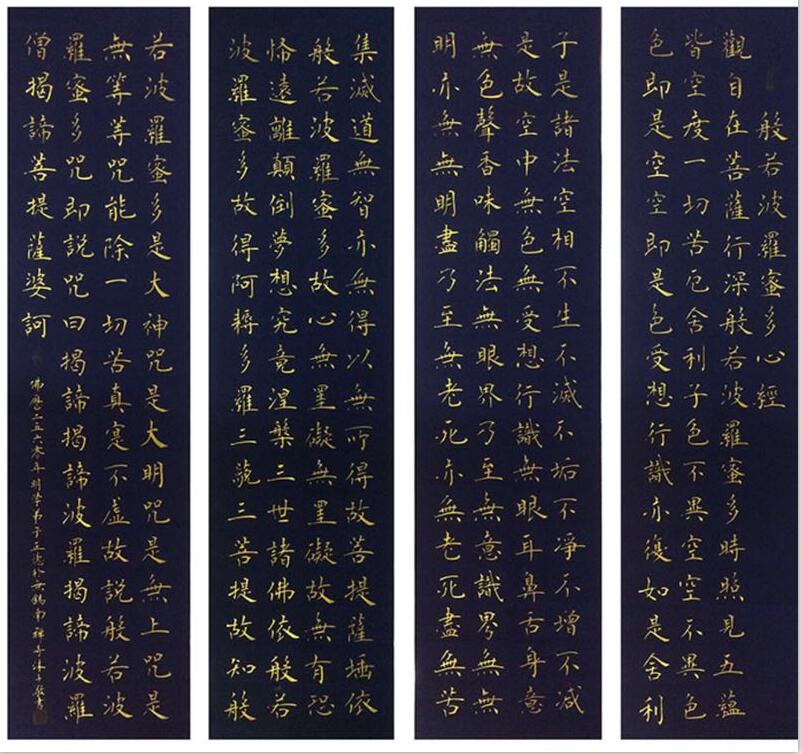 般若波羅蜜多心經
觀自在菩薩行深般若波羅蜜多時照見五蘊
皆空度一切苦厄舍利子色不異空空不異色
色即是空空即是色受想行識亦復如是舍利
子是諸法空相不生不滅不垢不淨不增不減
是故空中無色無受想行識無眼耳鼻舌身意
無色聲香味觸法無眼界乃至無意識界無無
明亦無無明盡乃至無老死亦無老死盡無苦
集滅道無智亦無得以無所得故菩提薩埵依
般若波羅蜜多故心無罣礙無罣礙故無有恐
怖遠離顛倒夢想究竟涅槃三世諸佛依般若
波羅蜜多故得阿耨多羅三藐三菩提故知般
若波羅蜜多是大神咒是大明咒是無上咒是
無等等咒能除一切苦真寔不虛故説般若波
羅蜜多咒即説咒曰揭諦揭諦波羅揭諦波羅
僧揭諦菩提薩婆訶
佛曆二五六零年弟子於無錫南禪寺沐手敬書